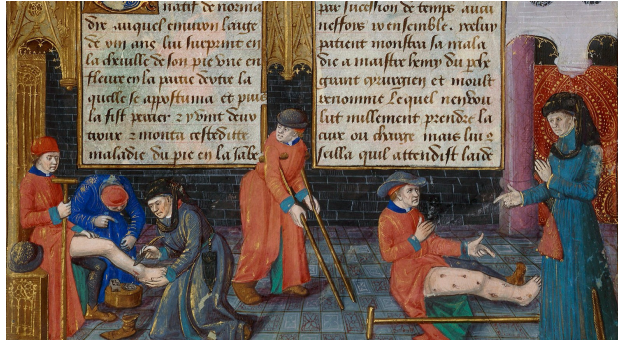 natif de norma
die auquel enuiron laage
de viii ans lui surprint en
la cheuille de son pie vne en
fleure en la partie la
quelle se apostuma et puis
la fist percer z y vint
troux z monta cestedite
maladie du pie en la Jabe
par sucession de temps aucu
ensemble.
patient monstra sa mala
die a maistre henry du
grant cyrurgien et moult
renomme Lequel
lut nullement prendre la
cure ou charge mais lui 9
seilla quil attendist laide